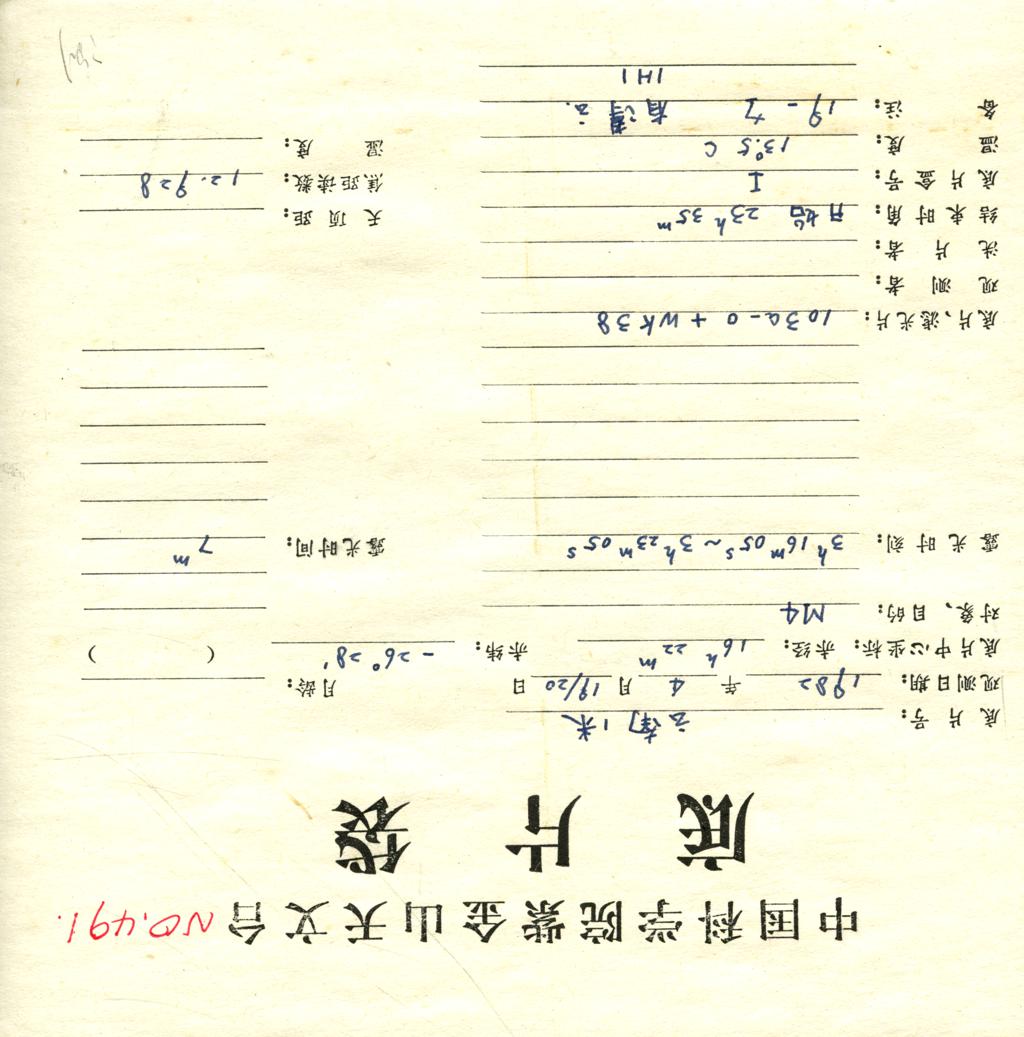 中国科学院紫金山天文台 NO.491.
底片袋
底片号: 云南1米
观测日期: 1982 年 4 月 19/20 日 月龄:
底片中心坐标: 赤经: 16ʰ 22ᵐ 赤纬: -26°28′ ( )
对象、目的: M4
露光时刻: 3ʰ16ᵐ05ˢ~3ʰ23ᵐ05ˢ 露光时间: 7ᵐ
底片、滤光片: 103a-O + WK38
观测者:
洗片者:
结束时角: 开始 23ʰ35ᵐ 天顶距:
底片盒号: I 焦距读数: 12.928
温度: 13°.5 C 湿度:
备注: 19- 有薄云.
1H1